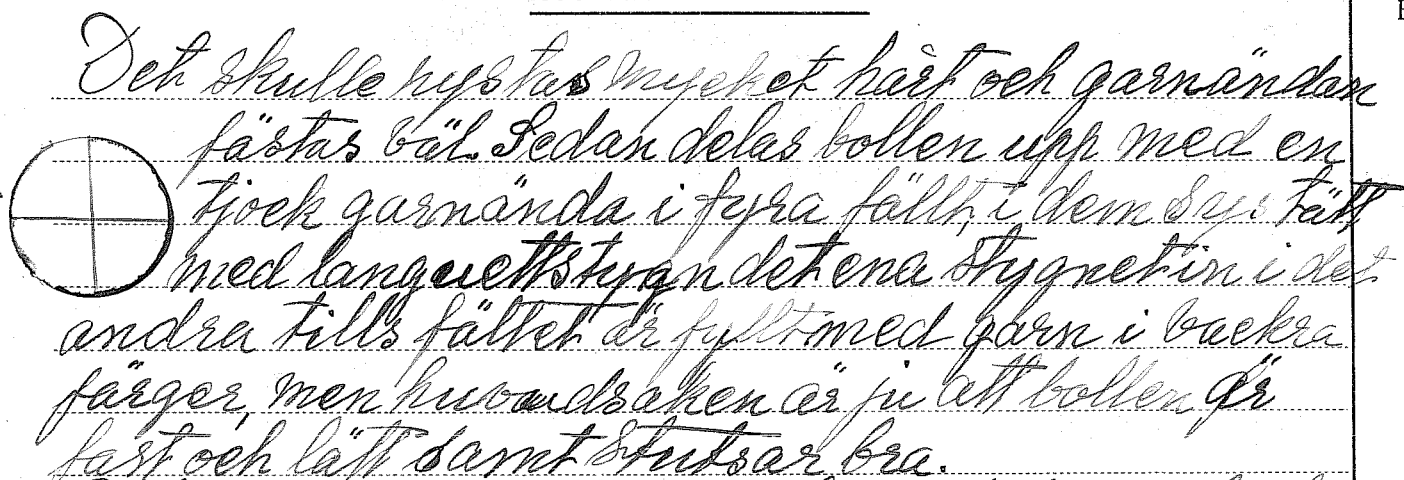 Det skulle nystas mycket hårt och garnändan
fästas väl. Sedan delas bollen upp med en
tjock garnända i fyra fällt, i dem sys tätt
med languettstygn det ena stygnet in i det
andra tills fältet är fyllt med garn i vackra
färger, men huvudsaken är ju att bollen är
fast och lätt samt studsar bra.